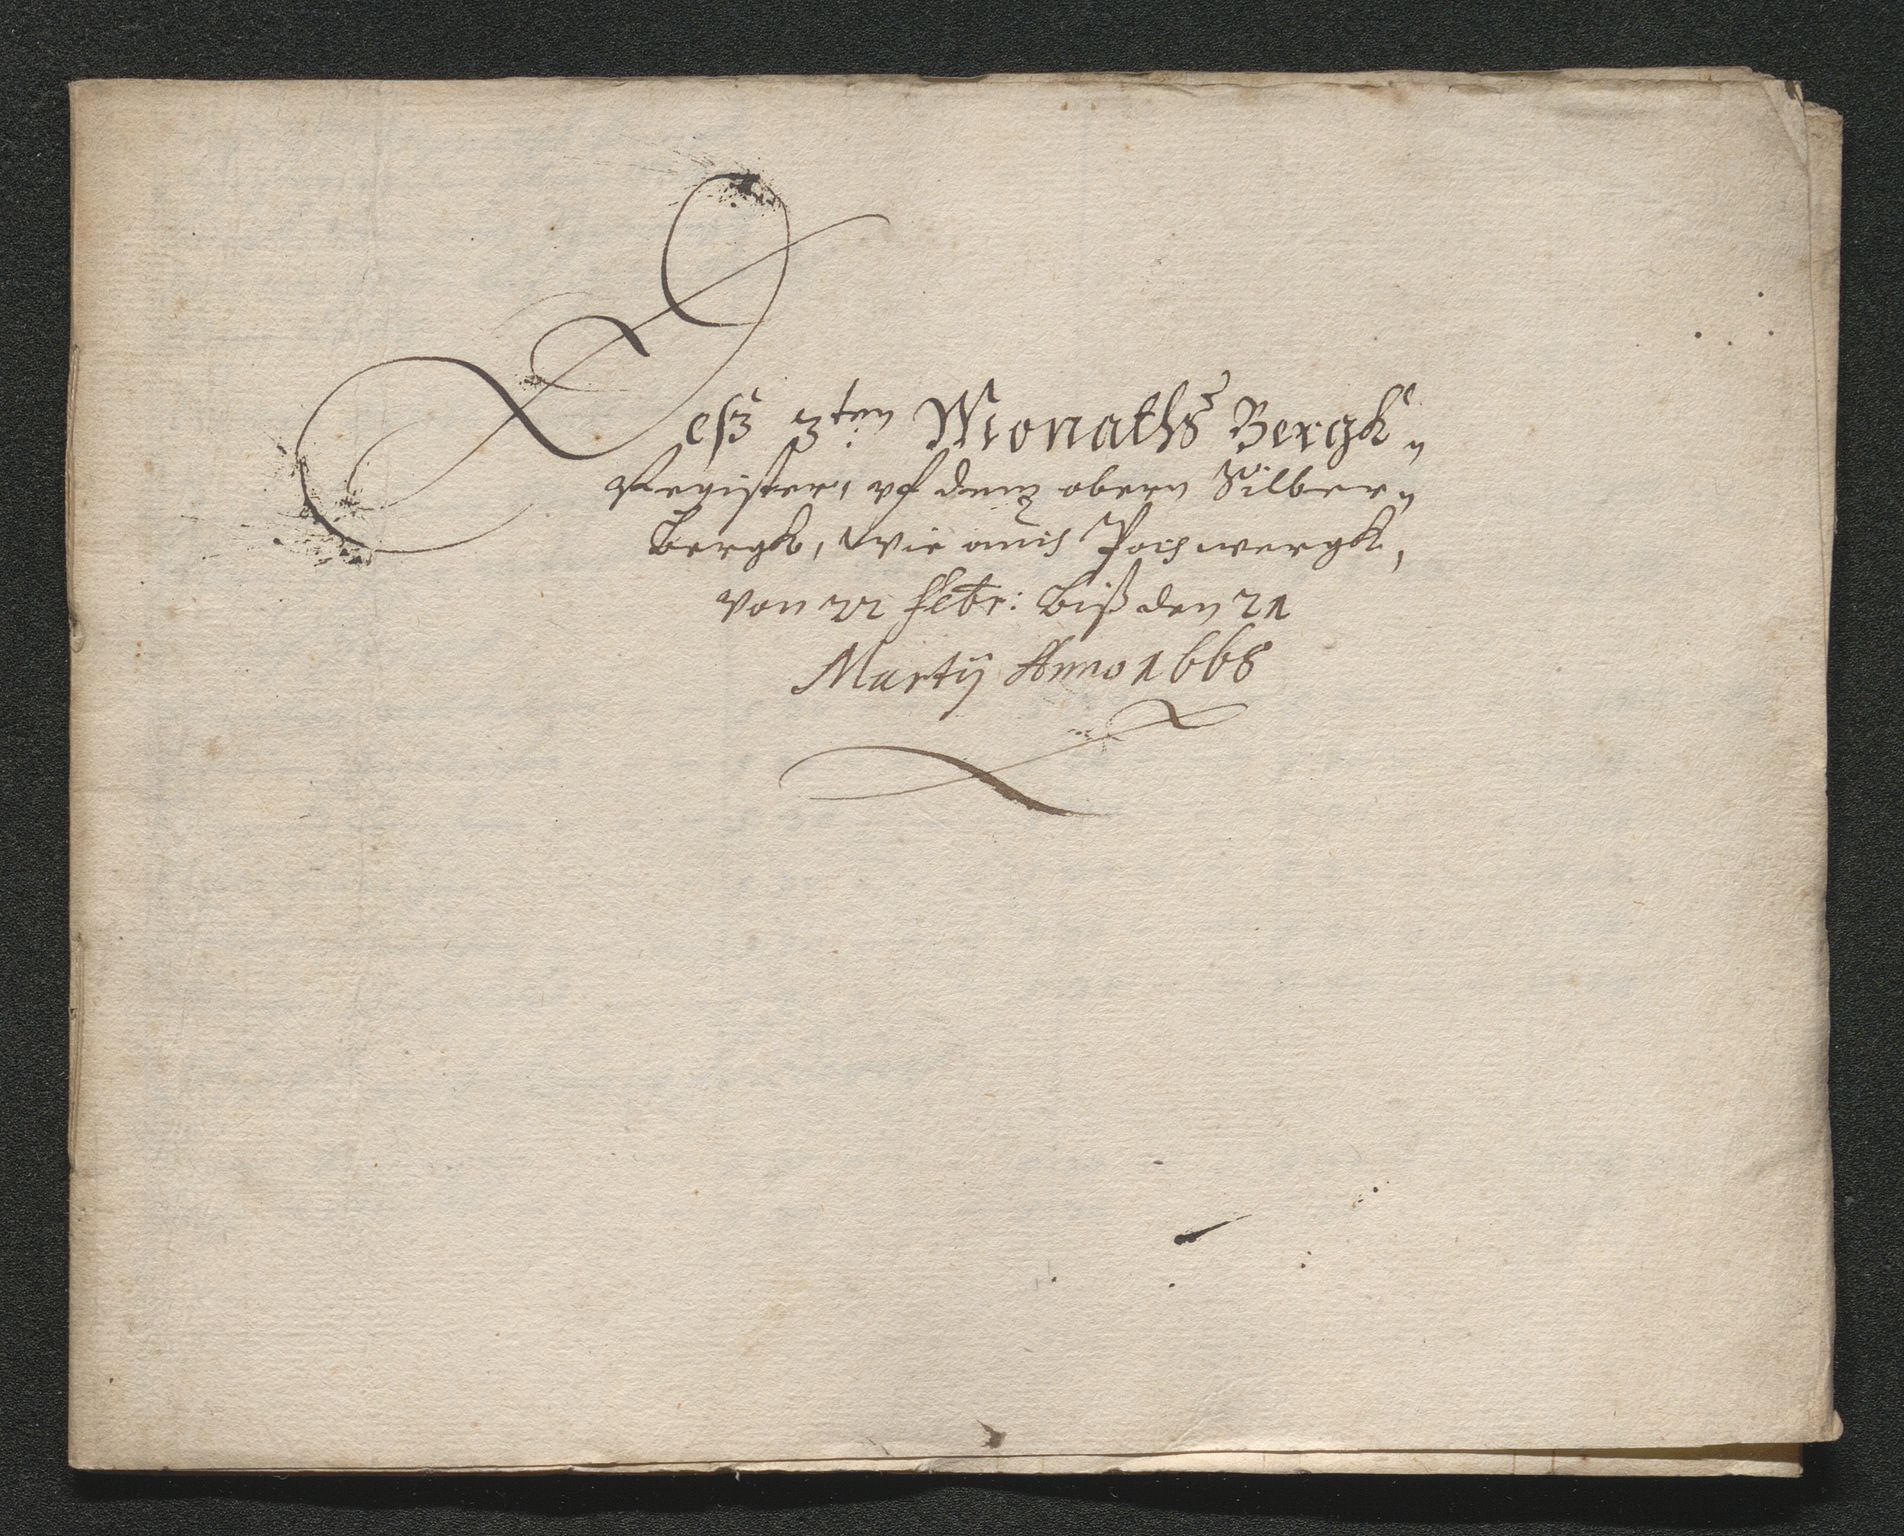 Deß 3ten Monaths Bergk-
Register, vf dem obern Silber-
Bergk, Wie auch Pochwergk,
Von 22 Febr: Biß den 21
Martij Anno 1668